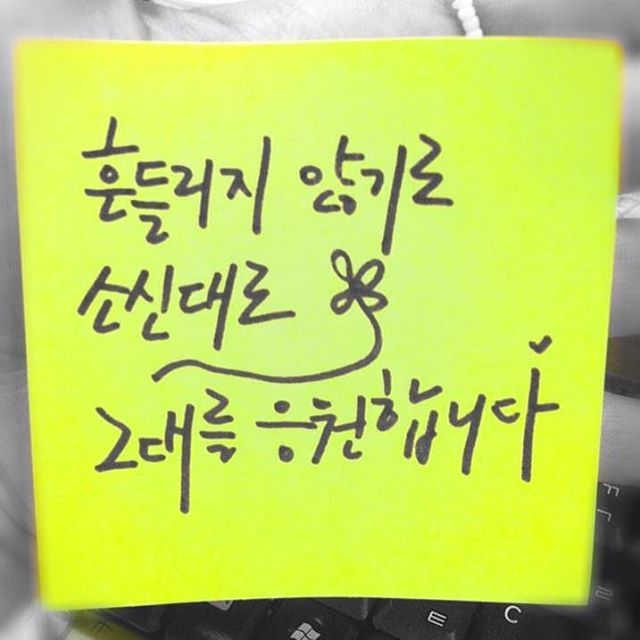 흔들리지 않기로
소신대로
그대를 응원합니다
ㅌ
C